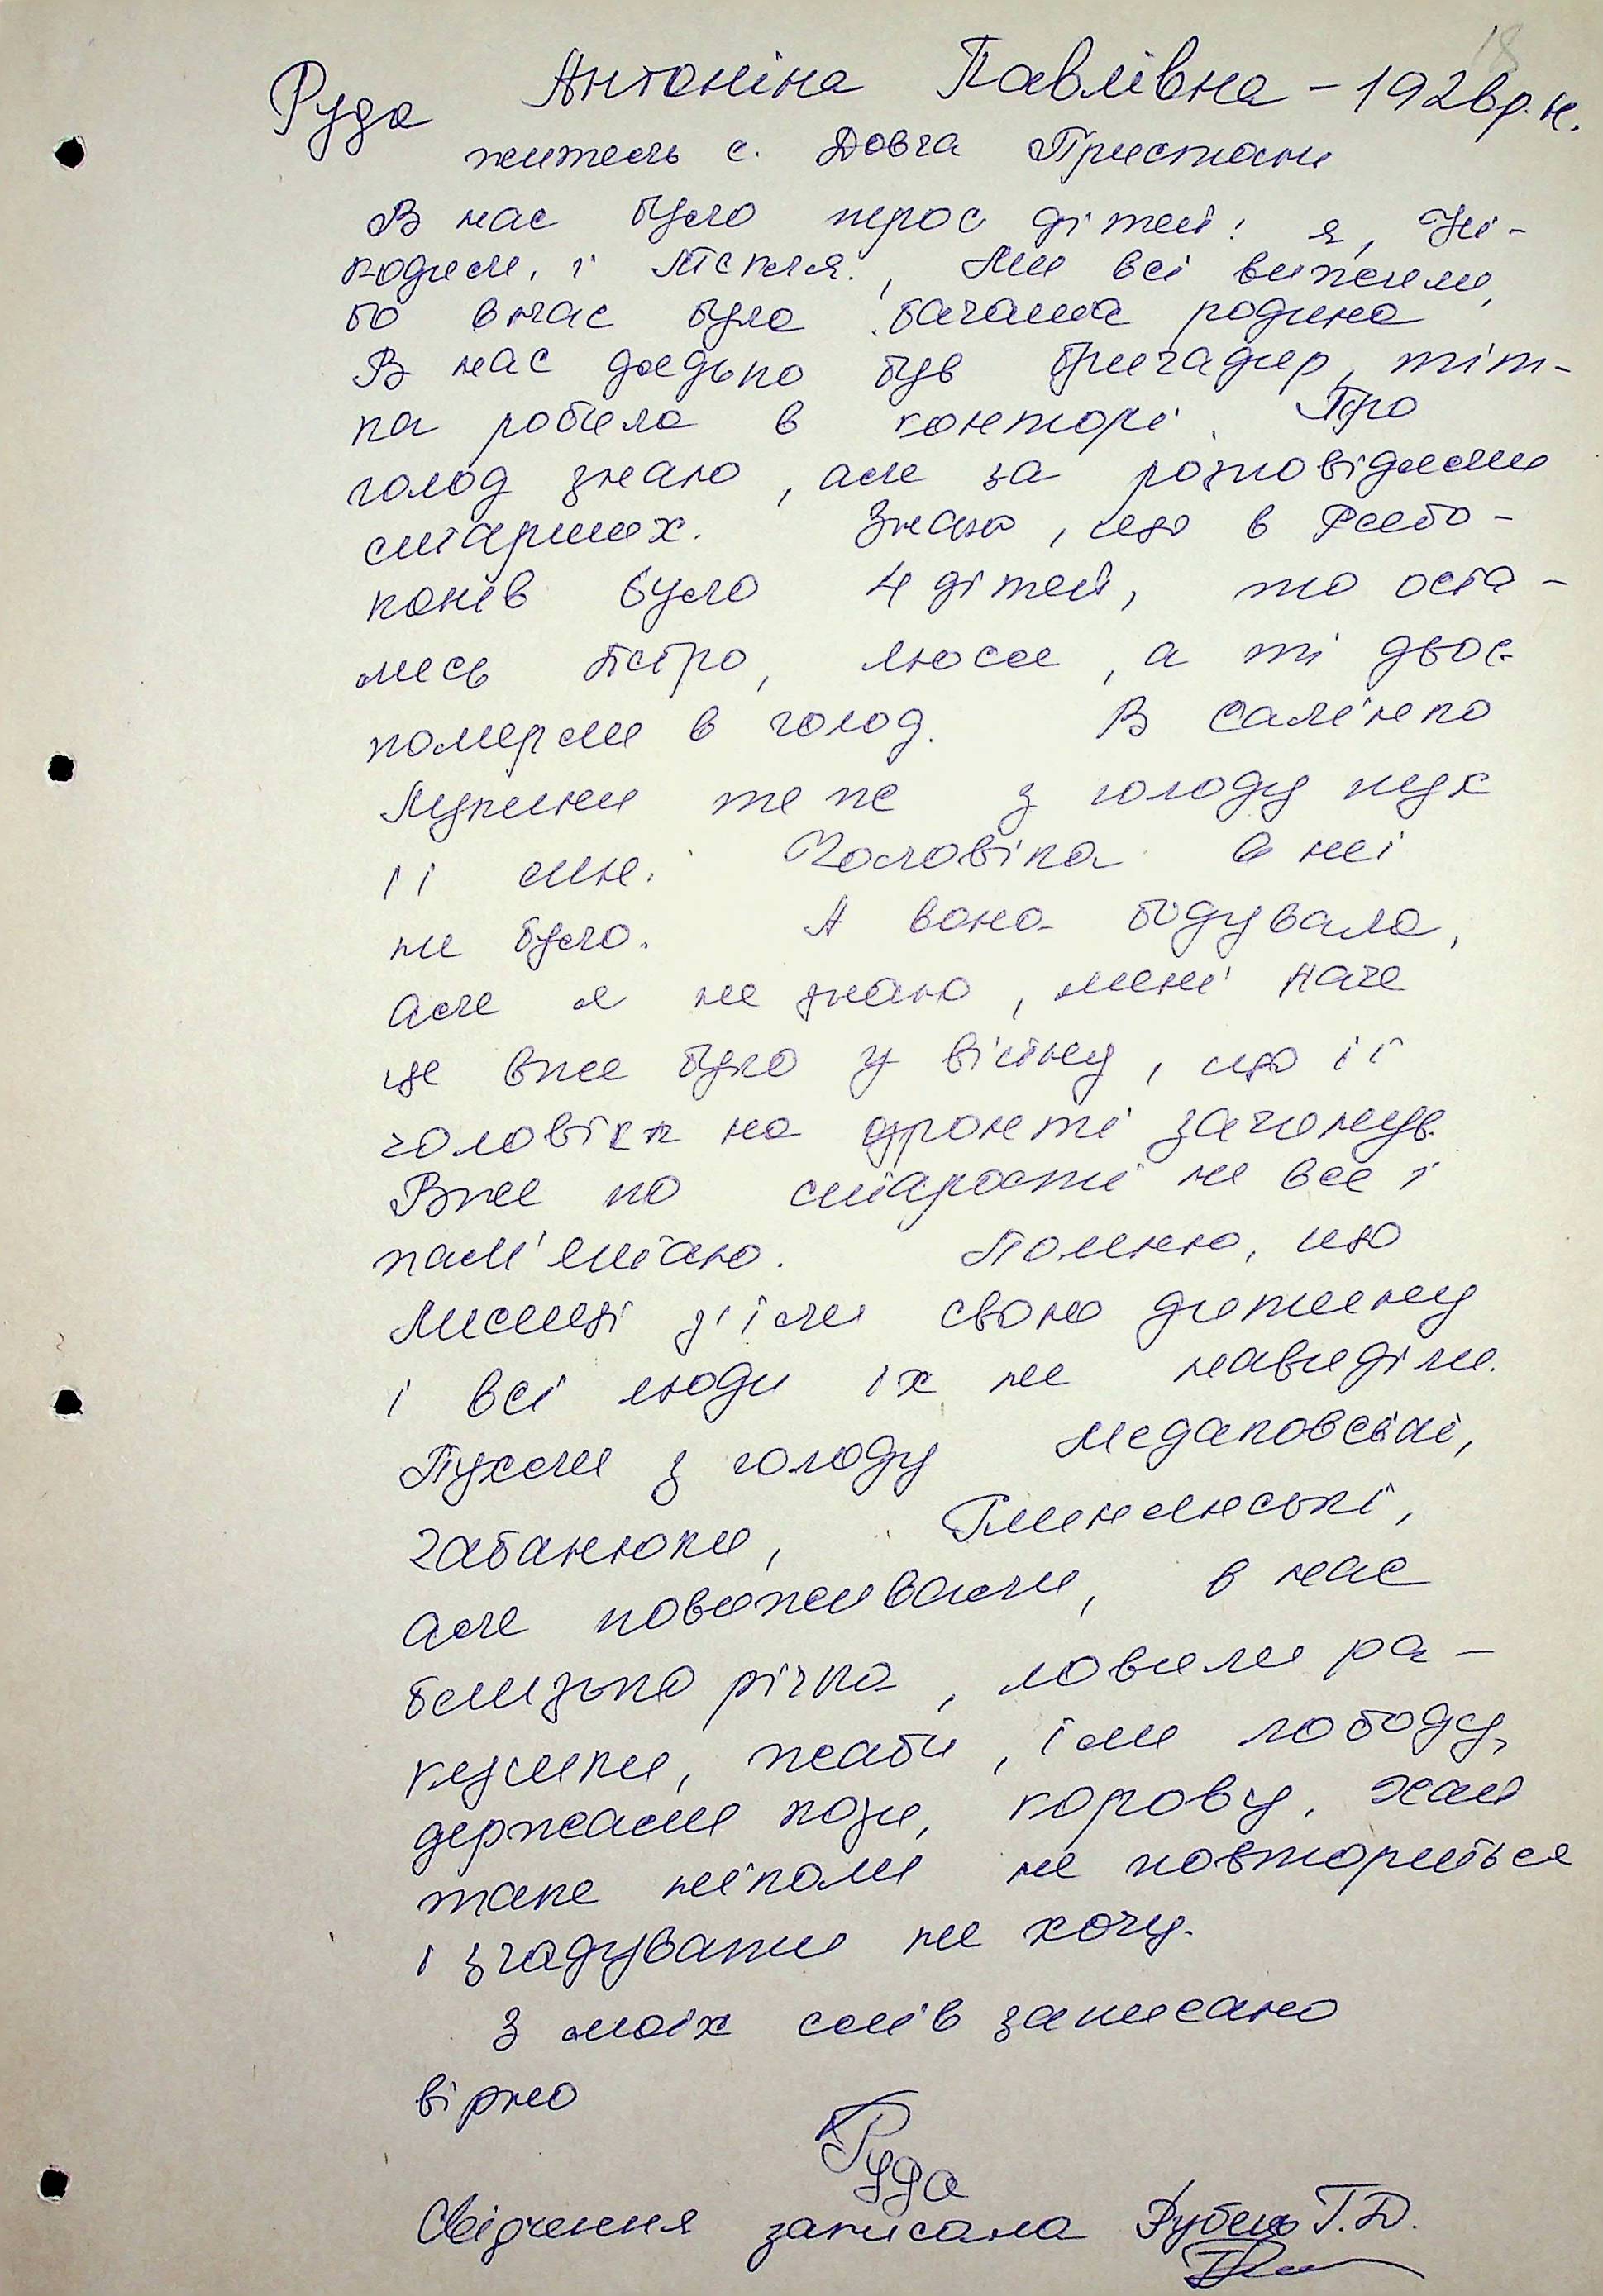 18
Руда Антоніна Павлівна - 1926 р.н.
житель с. Довга Пристань
В нас було троє дітей: я, Ні-
кодим, і Люся., Ми всі вижили,
бо внас була багата родина
В нас дядько був бригадир, тіт-
ка робила в конторі. Про
голод знаю, але за розповідями
старших. Знаю, що в Рябо-
конів було 4 дітей, то оста-
лись Пєтро, Люся, а ті двоє
померли в голод. В Салінко
Лукини теж з голоду пух
її син. Чоловіка в неї
не було. А вона годувала,
але я не знаю, мені наче
це вже було у війну, що її
чоловік на фронті загинув.
Вже по старості не все і
пам'ятаю. Помню, що
Лисиці з'їли свою дитину
і всі люди їх не навиділи.
Пухли з голоду
Чабанюки, Глинянські,
але повиживали, в нас
близько річка, ловили ра-
кушки, жаби, їли лободу,
держали кози, корову. Хай
таке ніколи не повториться
і згадувати не хочу.
З моїх слів записано
вірно
Руда
Свідчення записала Г.Д.